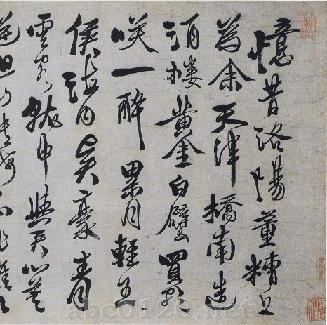 憶昔洛陽董糟丘
為余天津橋南造
酒樓黃金白璧買歌
笑一醉累月輕王
侯海内賢豪青
雲客就中與君心莫